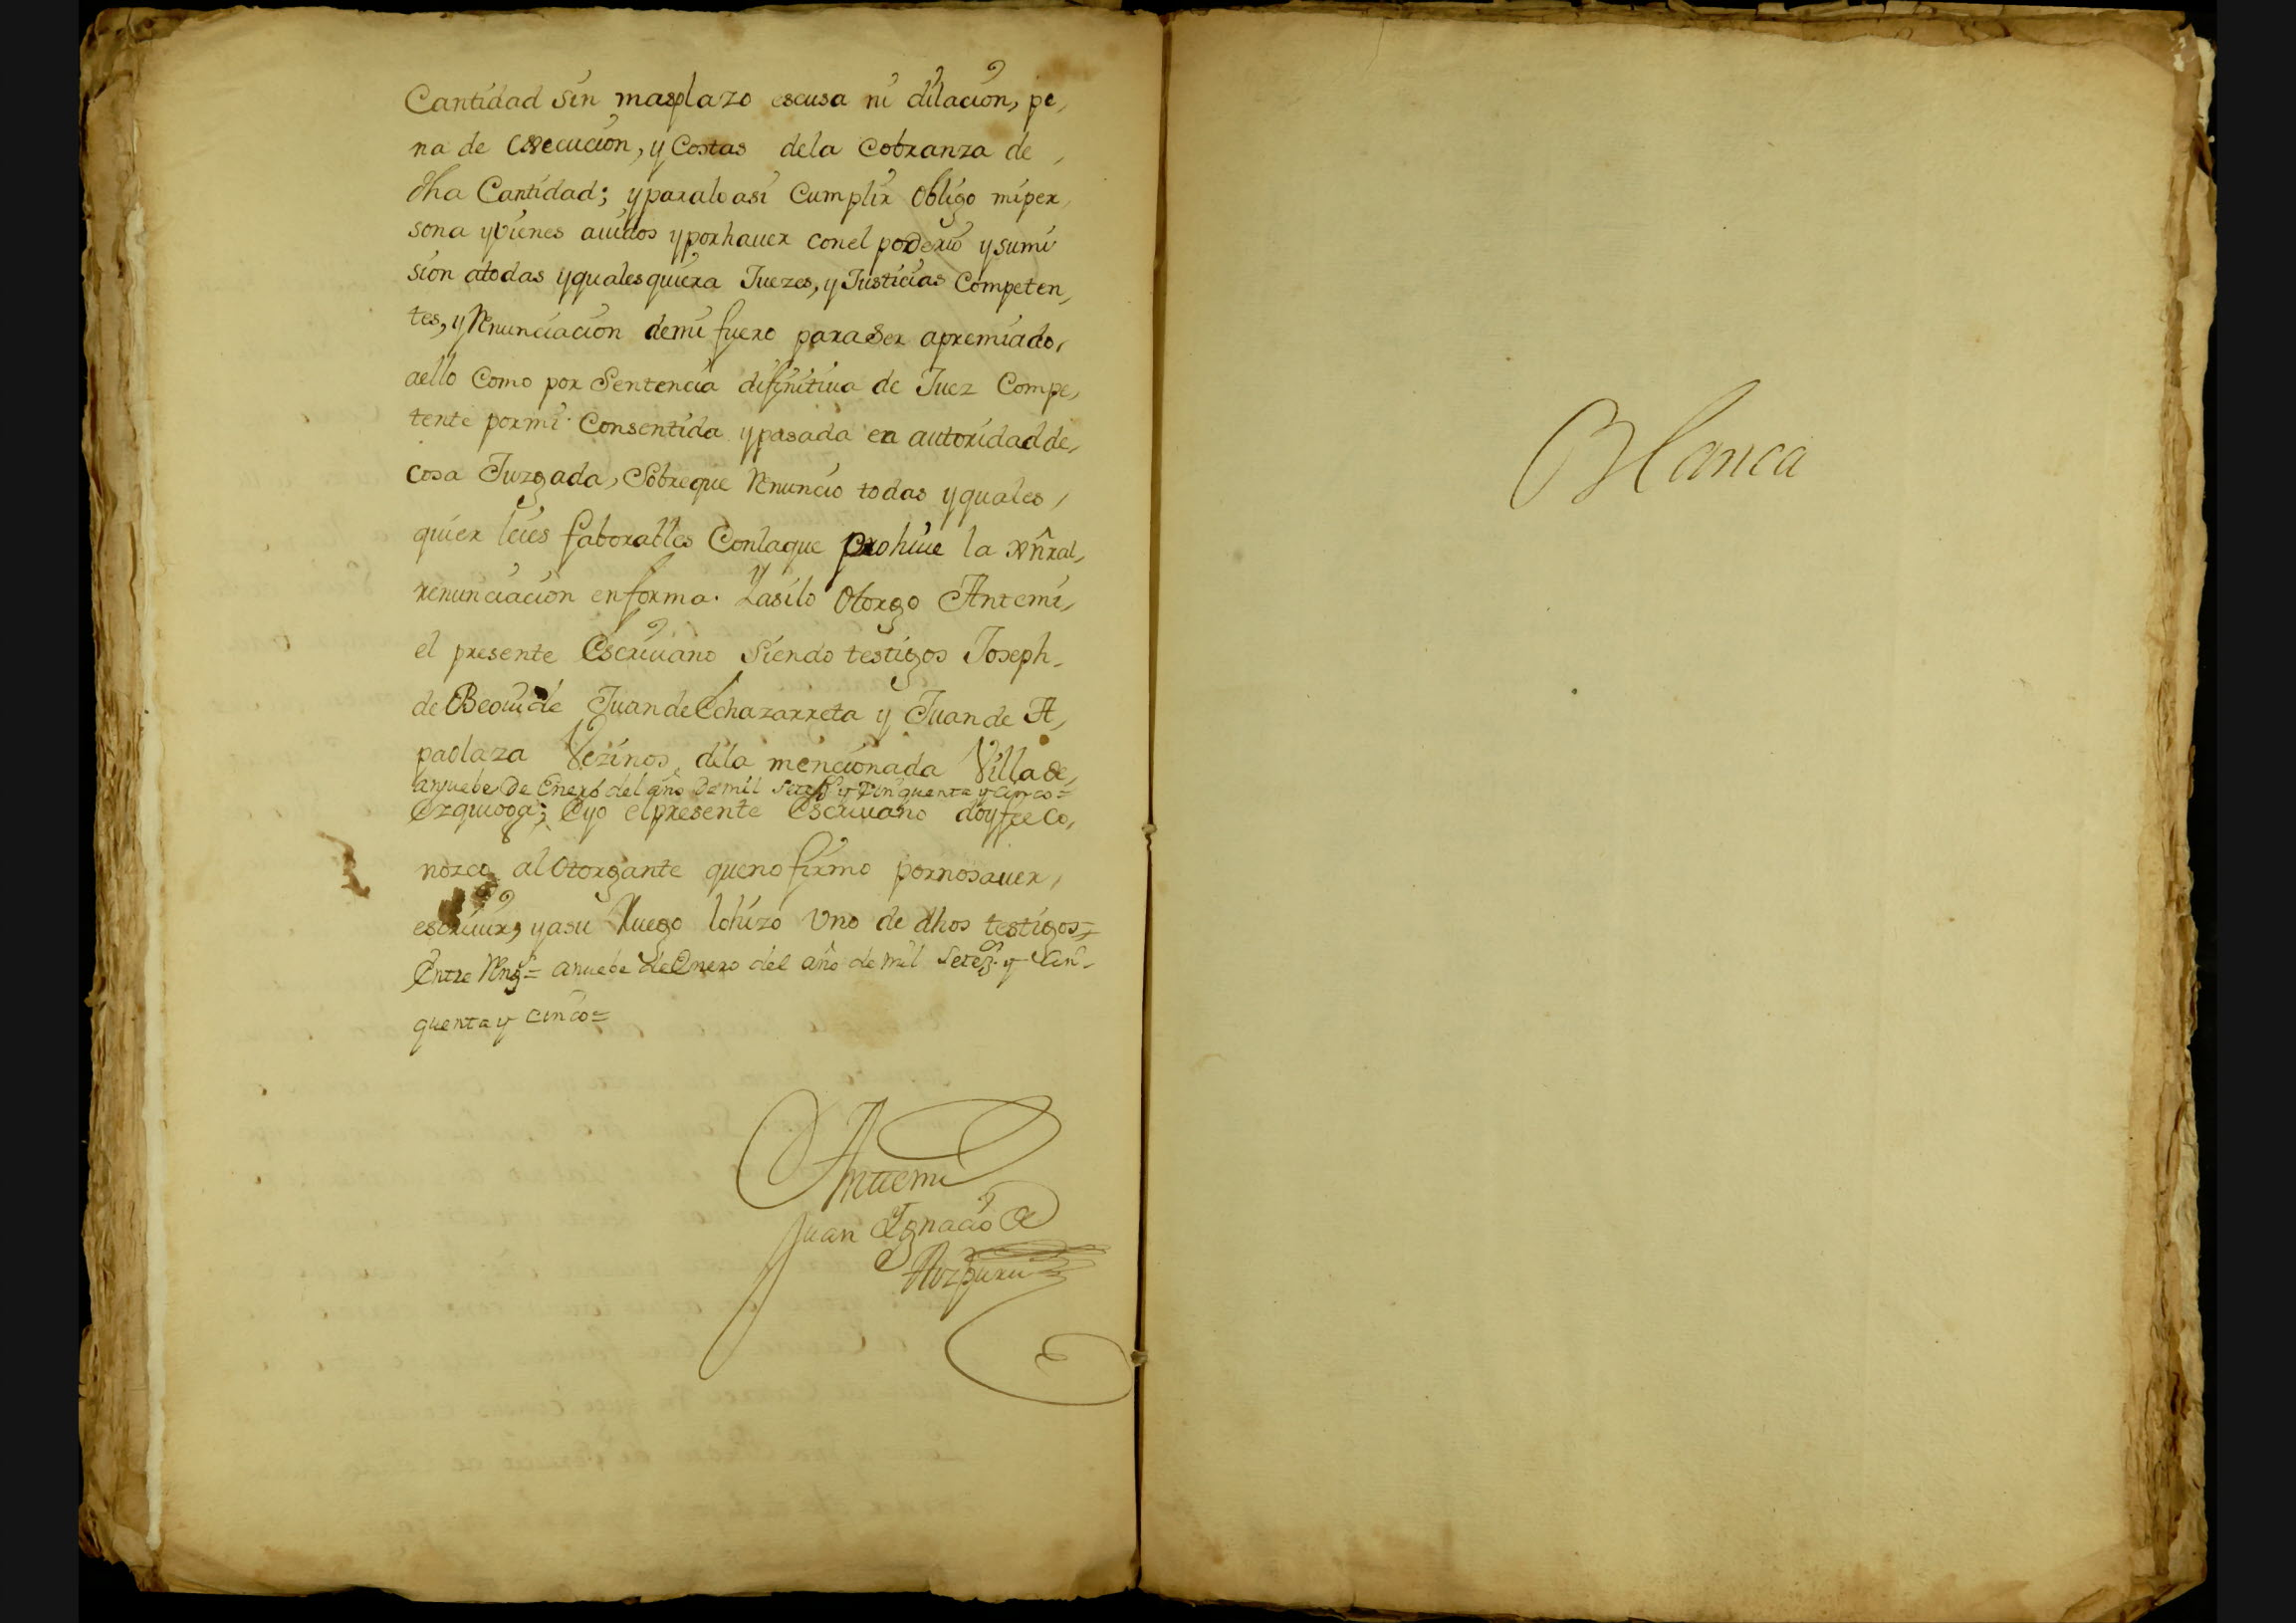 Cantidad sin masplazo escusa ni dilacion, pe,
na de execucion, y Costas dela Cobranza de,
dha Cantidad; yparaloasi Cumplir obligo miper,
sona yvienes auidos yporhauer conel poderio ysumi
sion atodas yqualesquiera Juezes, y Justicias Competen,
tes, y Renunciacion demi fuero paraser apremiado,
aello Como por Sentencia difinitiua de Juez Compe,
tente pormi Consentida ypasada en autoridadde,
cosa Juzgada, Sobreque Renuncio todas yquales,
quier leies faborables Conlaque prohiue la xñral,
renunciacion enforma. Yasilo Otorgo Antemi,
el presente Escriuano Siendo testigos Joseph-
de Beouide Juan de Echazarreta y Juan de A,
paolaza Vezinos, dela mencionada Villa de,
anuebe de Enero del año de mil Setezs y Cinquenta y cinco=
Ezquioga; Eyo elpresente Escriuano doyfee Co,
nozco al Otorgante quenofirmo pornosauer,
escriuir, yasu Ruego lohizo Uno de dhos testigos=
Entre Rengs= anuebe de Enero del año de mil Setezs. y Cin-
quenta y cinco=
Antemi
Juan Ignacio de
Aizpuru
Blanca